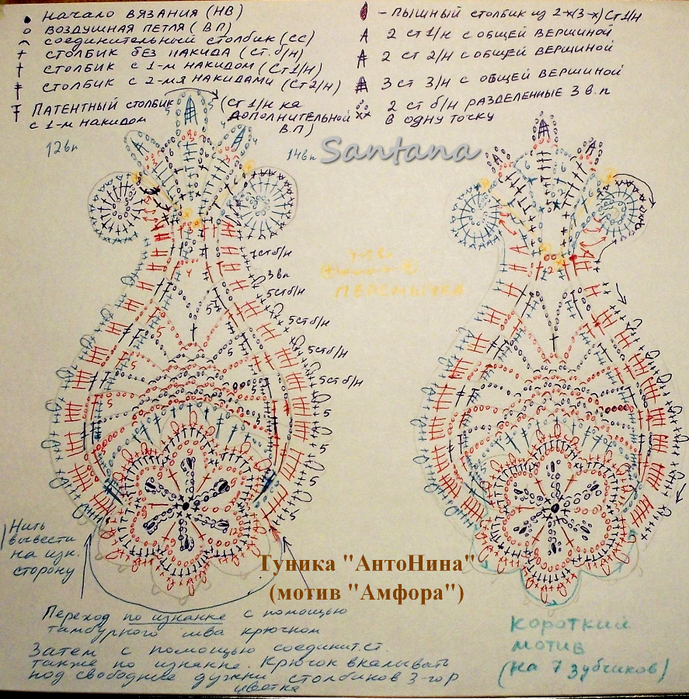 • начало вязания (НВ)
о воздушная петля (ВП)
соединительный столбик (СС)
+ столбик без накида (Ст. б/н)
столбик с 1-м накидом (Ст1/н)
столбик с 2-мя накидами (Ст2/н)
патентный столбик (Ст 1/н на
с 1-м накидом дополнительной
В.П)
- пышный столбик из 2-х(3-х)Ст1/н
2 ст 1/н с общей вершиной
2 ст 2/н с общей вершиной
3 ст 3/н с общей вершиной
2 ст б/н разделенные 3 в.п
в одну точку
12вп
14вп
Santana
7стб/н
3вп
5стб/н
5стб/н
5стб/н
5стб/н
перемычки
Нить
вывести
на изн.
сторону
Туника "АнтоНина"
(мотив "Амфора")
Переход по изнанке с помощью
тамбурного шва крючком
Затем с помощью соединит.ст.
также по изнанке. Крючок вкалывать
под свободные дужки столбиков 3-го р
цветка
короткий
мотив
(на 7 зубчиков)